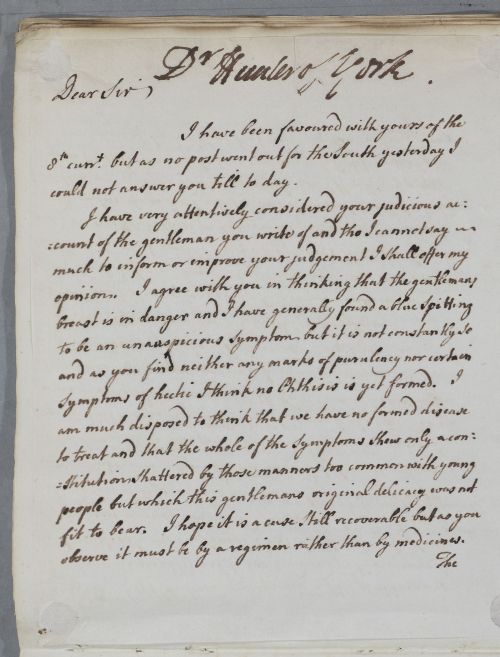 Dr Hunter of York.
Dear Sir,
I have been favoured with yours of the
8th currt. but as no post went out for the South yesterday I
could not answer you till to day.
I have very attentively considered your judicious ac:
:count of the gentleman you write of and tho I cannot say
much to inform or improve your judgement I shall offer my
opinion. I agree with you in thinking that the gentlemans
breast is in danger and I have generally found a blue Spitting
to be an unauspicious Symptom but it is not constantly so
and as you find neither any marks of purulency nor certain
Symptoms of hectic I think no Phthisis is yet formed. I
am much disposed to think that we have no formed disease
to treat and that the whole of the Symptoms Shew only a con:
=stitution Shattered by those manners too common with young
people but which this gentlemans original delicacy was not
fit to bear. I hope it is a case Still recoverable but as you
observe it must be by a regimen rather than by medicines.
The